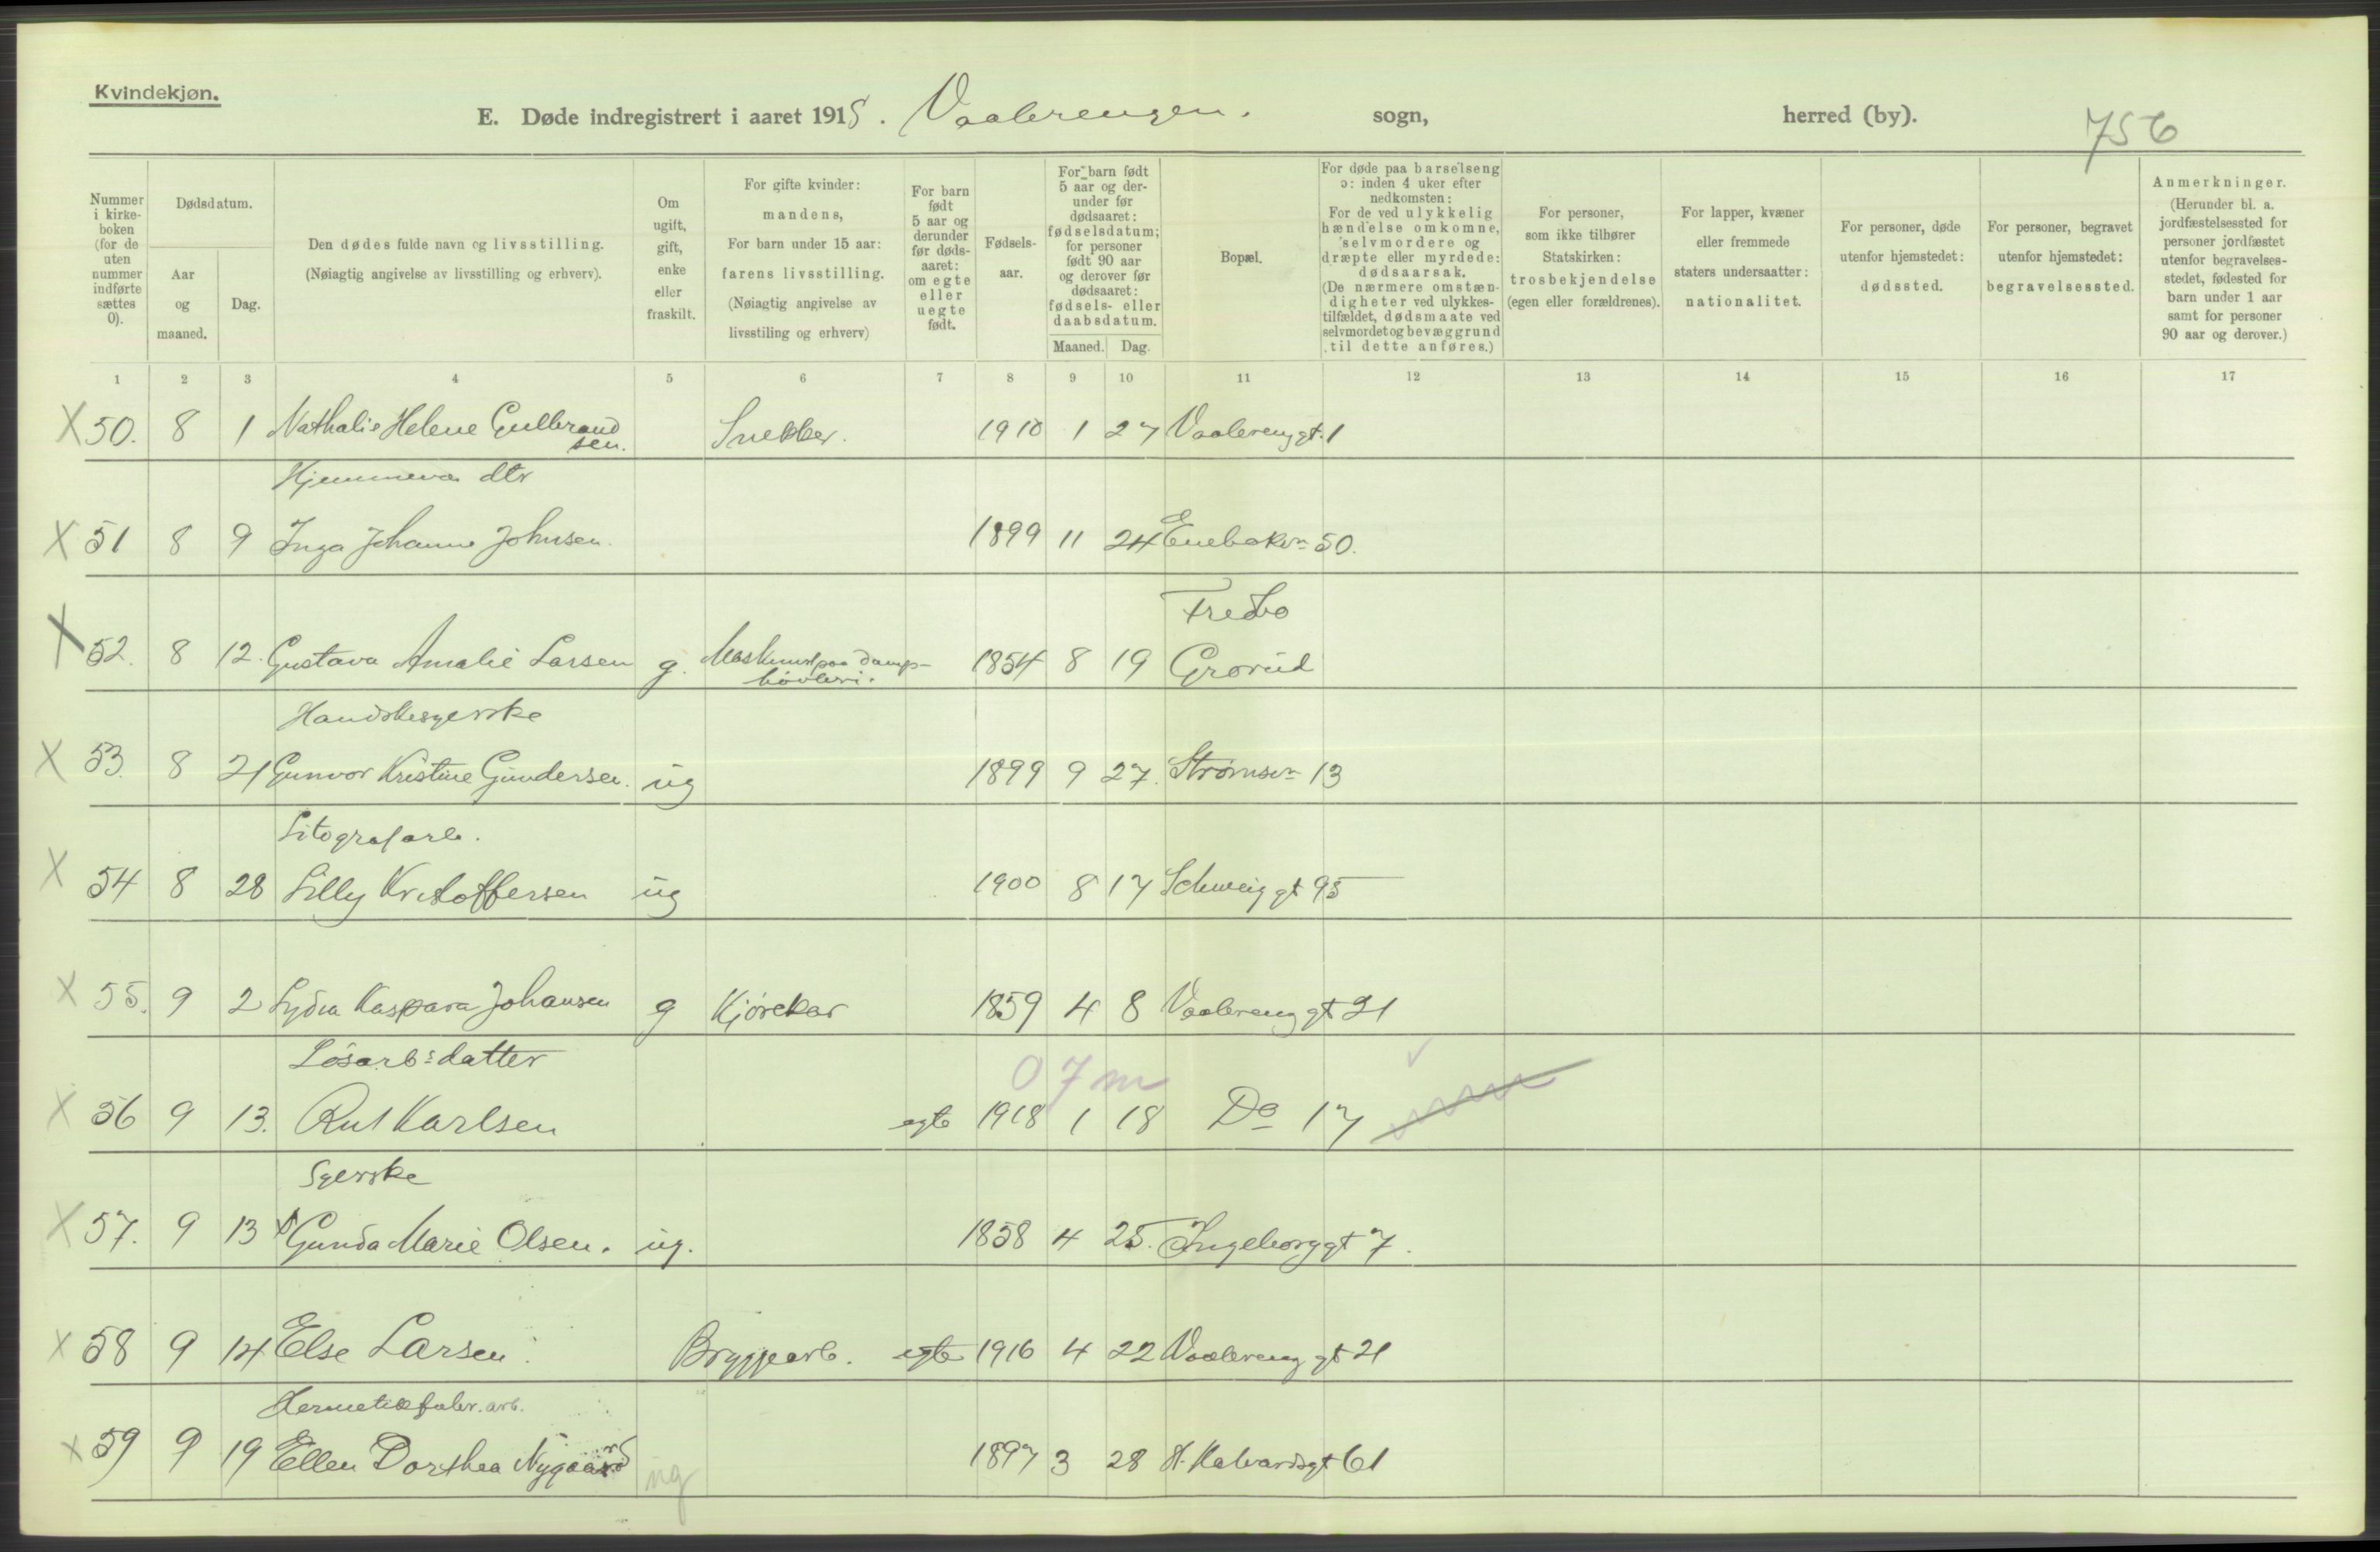 Kvindekjøn.
E. Døde indregistrert i aaret 1918. Vaalerengen. sogn, herred (by). 756
Nummer i kirkeboken (for de uten nummer indførte sættes 0).
Dødsdatum.
Aar og maaned.
Dag.
Den dødes fulde navn og livsstilling. (Nøiagtig angivelse av livsstilling og erhverv).
Om ugift, gift, enke eller fraskilt.
For gifte kvinder: mandens, For barn under 15 aar: farens livsstilling. (Nøiagtig angivelse av livsstiling og erhverv)
For barn født 5 aar og derunder før dødsaaret: om egte eller uegte født.
Fødselsaar.
For barn født 5 aar og derunder før dødsaaret: fødselsdatum; for personer født 90 aar og derover før dødsaaret: fødsels- eller daabsdatum.
Maaned. Dag.
Bopæl.
For døde paa barselseng ɔ: inden 4 uker efter nedkomsten: For de ved ulykkelig hændelse omkomne, selvmordere og dræpte eller myrdede: dødsaarsak. (De nærmere omstændigheter ved ulykkestilfældet, dødsmaate ved selvmordet og bevæggrund til dette anføres.)
For personer, som ikke tilhører Statskirken: trosbekjendelse (egen eller forældrenes).
For lapper, kvæner eller fremmede staters undersaatter: nationalitet.
For personer, døde utenfor hjemstedet: dødssted.
For personer, begravet utenfor hjemstedet: begravelsessted.
Anmerkninger. (Herunder bl. a. jordfæstelsessted for personer jordfæstet utenfor begravelsesstedet, fødested for barn under 1 aar samt for personer 90 aar og derover.)
1 2 3 4 5 6 7 8 9 10 11 12 13 14 15 16 17
X 50. 8 1 Nathalie Helene Gulbrandsen. Snekker. 1910 1 27 Vaalerenggt. 1
Hjemmevær dtr
X 51 8 9 Inga Johanne Johnsen. 1899 11 24 Enebakvn 50.
Fredbo
X 52. 8 12. Gustava Amalie Larsen g. Maskinist paa Damphøvleri. 1854 8 19 Grorud
Handskesyerske
X 53. 8 21 Gunvor Kristine Gundersen. ug 1899 9 27. Strømsvn 13
Litografarb.
X 54 8 28 Lilly Kristoffersen ug 1900 8 17 Schweiggt 95
X 55. 9 2 Lydia Kaspara Johansen g Kjørekar 1859 4 8 Vaalerenggt 21
Løsarb:s datter 0 7 m
X 56 9 13. Rut Karlsen egte 1918 1 18 Do 17
Syerske
X 57. 9 13 Gunda Marie Olsen. ug. 1858 4 25. Ingeborggt 7.
X 58 9 14 Else Larsen. Bryggearb. egte 1916 4 22 Vaalerenggt 21
Hermetikfabr. arb.
X 59 9 19 Ellen Dorthea Nygaard ug 1897 3 28 St. Halvardsgt 61